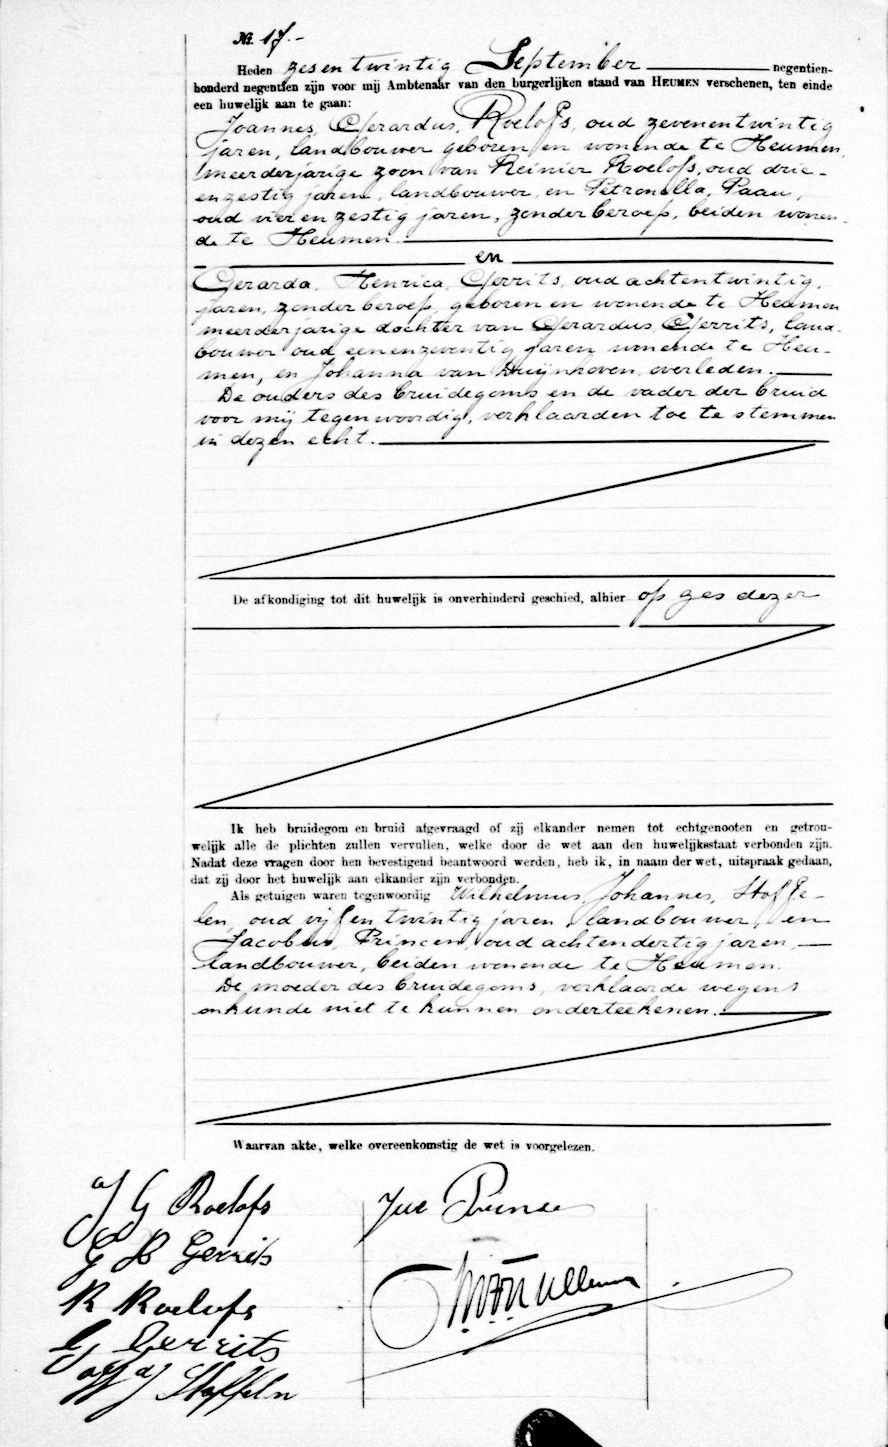 No. 17.-
Heden zes en twintig September negentien-
honderd negentien zijn voor mij Ambtenaar van den burgerlijken stand van HEUMEN verschenen, ten einde
een huwelijk aan te gaan:
Joannes, Gerardus, Roelofs, oud zevenentwintig
jaren, landbouwer geboren en wonende te Heumen,
meerderjarige zoon van Reinier Roelofs, oud drie-
enzestig jaren, landbouwer, en Petronella, Paau,
oud vier en zestig jaren, zonder beroep, beiden wonen-
de te Heumen.
en
Gerarda, Henrica, Gerrits, oud achtentwintig,
jaren, zonder beroep, geboren en wonende te Heumen
meerderjarige dochter van Gerardus, Gerrits, land-
bouwer oud eenenzeventig jaren wonende te Heu-
men, en Johanna van Duijnhoven, overleden.
De ouders des bruidegoms en de vader der bruid
voor mij tegenwoordig, verklaarden toe te stemmen
in dezen echt.
De afkondiging tot dit huwelijk is onverhinderd geschied, alhier op zes dezer
Ik heb bruidegom en bruid afgevraagd of zij elkander nemen tot echtgenooten en getrou-
welijk alle de plichten zullen vervullen, welke door de wet aan den huwelijksstaat verbonden zijn.
Nadat deze vragen door hen bevestigend beantwoord werden, heb ik, in naam der wet, uitspraak gedaan,
dat zij door het huwelijk aan elkander zijn verbonden.
Als getuigen waren tegenwoordig Wilhelmus, Johannes, Stoffe-
len, oud vijf en twintig jaren, landbouwer, en
Jacobus, Princen, oud achtendertig jaren,
landbouwer, beiden wonende te Heumen.
De moeder des bruidegoms, verklaarde wegens
onkunde niet te kunnen onderteekenen.
Waarvan akte, welke overeenkomstig de wet is voorgelezen.
J G Roelofs
G H Gerrits
R Roelofs
G Gerrits
W J Stoffeln